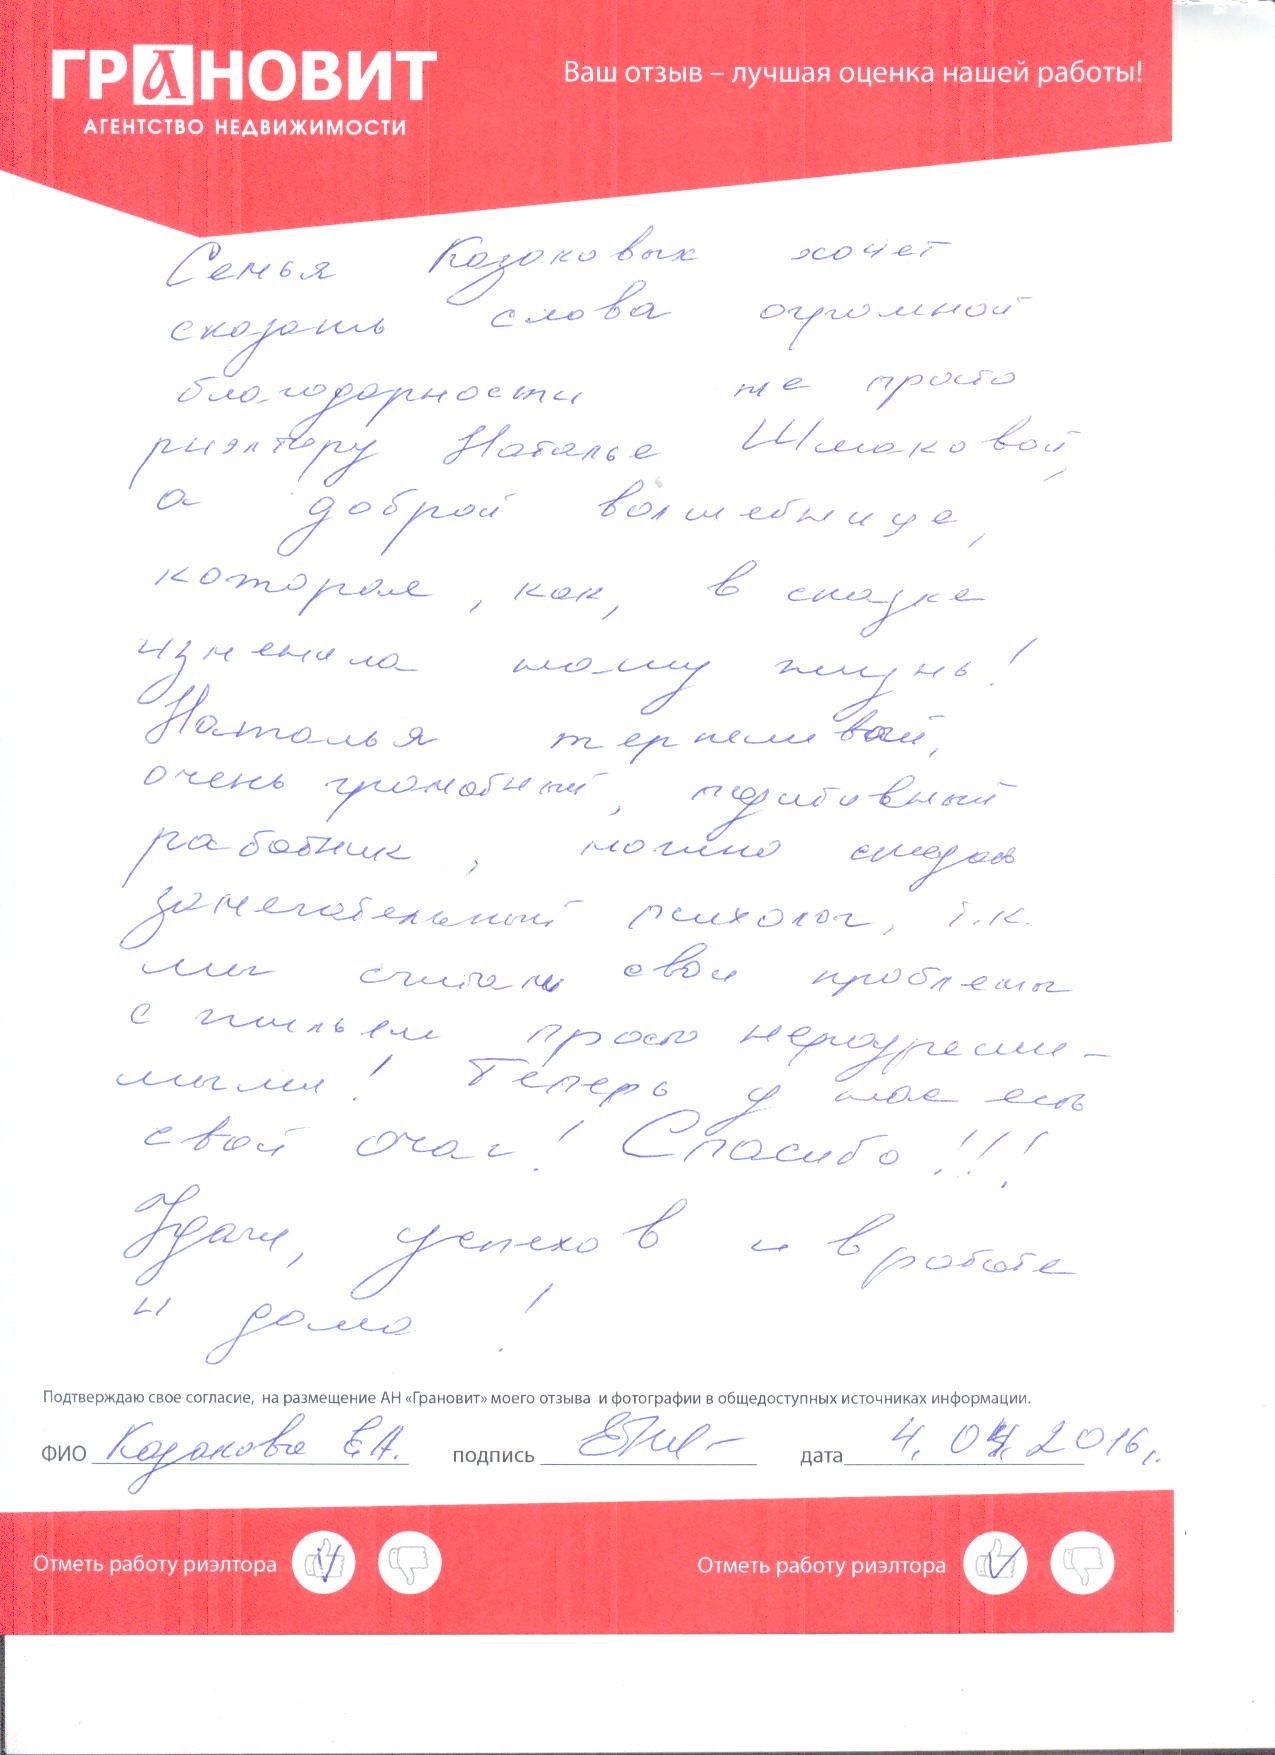 ГРАНОВИТ
АГЕНТСТВО НЕДВИЖИМОСТИ
Ваш отзыв – лучшая оценка нашей работы!
Семья Казаковых хочет
сказать слова огромной
благодарности не просто
риэлтору Наталье Шмаковой,
а доброй волшебнице,
которая, как, в сказке
изменила нашу жизнь!
Наталья терпеливый,
очень грамотный, позитивный
работник, можно сказать
замечательный психолог, т.к.
мы считали свои проблемы
с жильем просто неразреши-
мыми! Теперь у нас есть
свой очаг! Спасибо!!!
Удачи, успехов и в работе
и дома!
Подтверждаю свое согласие, на размещение АН «Грановит» моего отзыва и фотографии в общедоступных источниках информации.
ФИО Казакова Е.А. подпись дата 4.04.2016г.
Отметь работу риэлтора Отметь работу риэлтора